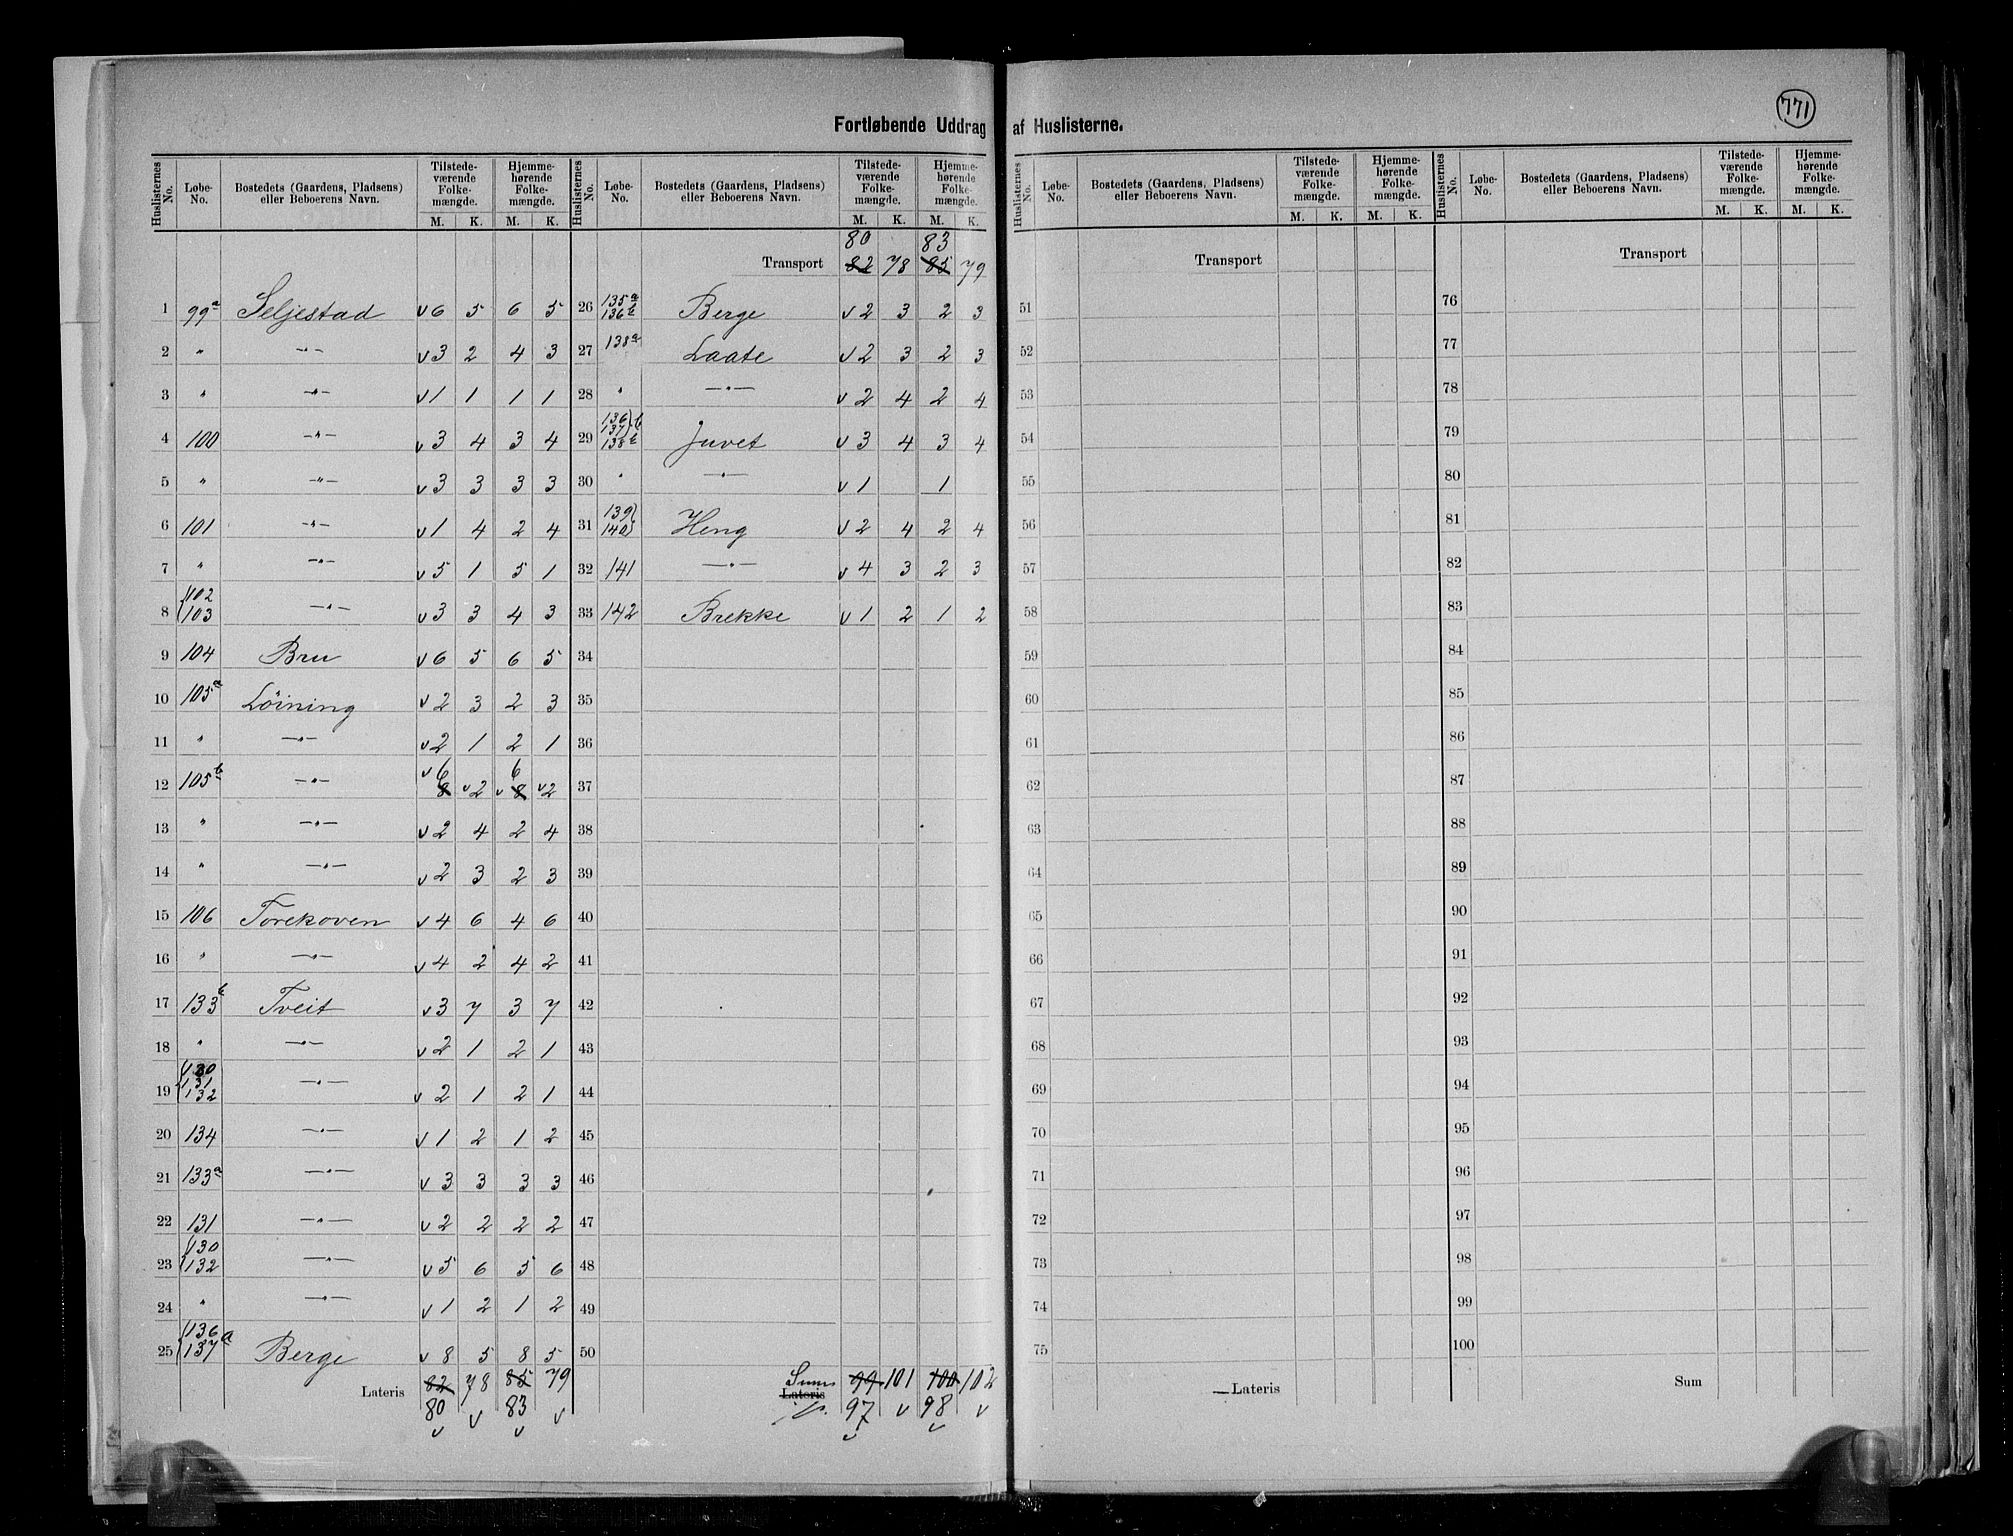 771
Fortløbende Uddrag af Huslisterne.
Huslisternes No. Løbe-No. Bostedets (Gaardens, Pladsens) eller Beboerens Navn. Tilstedeværende Folkemængde. M. K. Hjemmehørende Folkemængde. M. K.
1 99a Seljestad v6 5 6 5
2 " —"— v3 2 4 3
3 " —"— v1 1 1 1
4 100 —"— v3 4 3 4
5 " —"— v3 3 3 3
6 101 —"— v1 4 2 4
7 " —"— v5 1 5 1
8 {102 103 —"— v3 3 4 3
9 104 Bru v6 5 6 5
10 105a Løining v2 3 2 3
11 " —"— v2 1 2 1
12 105b —"— v6 8 v2 6 v8 v2
13 " —"— v2 4 2 4
14 " —"— v2 3 2 3
15 106 Torekoven v4 6 4 6
16 " —"— v4 2 4 2
17 133b Tveit v3 7 3 7
18 " —"— v2 1 2 1
19 {130 131 132 —"— v2 1 2 1
20 134 —"— v1 2 1 2
21 133a —"— v3 3 3 3
22 131 —"— v2 2 2 2
23 {130 132 —"— v5 6 5 6
24 " —"— v1 2 1 2
25 {136 137 a Berge v8 5 8 5
Lateris 82 78 85 79
80 v 83 v
v v
Huslisternes No. Løbe-No. Bostedets (Gaardens, Pladsens) eller Beboerens Navn. Tilstedeværende Folkemængde. M. K. Hjemmehørende Folkemængde. M. K.
80 83
Transport 82 78 85 79
26 135a 136b Berge v2 3 2 3
27 138a Laate v2 3 2 3
28 " —"— v2 4 2 4
29 136 137 b 138b Juvet v3 4 3 4
30 " —"— v1 1
31 139 140 Heng v2 4 2 4
32 141 —"— v4 3 2 3
33 142 Brekke v1 2 1 2
34
35
36
37
38
39
40
41
42
43
44
45
46
47
48
49
50
Sum
Lateris 99 101 100 102
97 v 98 v
v v
Huslisternes No. Løbe-No. Bostedets (Gaardens, Pladsens) eller Beboerens Navn. Tilstedeværende Folkemængde. M. K. Hjemmehørende Folkemængde. M. K.
Transport
51
52
53
54
55
56
57
58
59
60
61
62
63
64
65
66
67
68
69
70
71
72
73
74
75
Lateris
Huslisternes No. Løbe-No. Bostedets (Gaardens, Pladsens) eller Beboerens Navn. Tilstedeværende Folkemængde. M. K. Hjemmehørende Folkemængde. M. K.
Transport
76
77
78
79
80
81
82
83
84
85
86
87
88
89
90
91
92
93
94
95
96
97
98
99
100
Sum